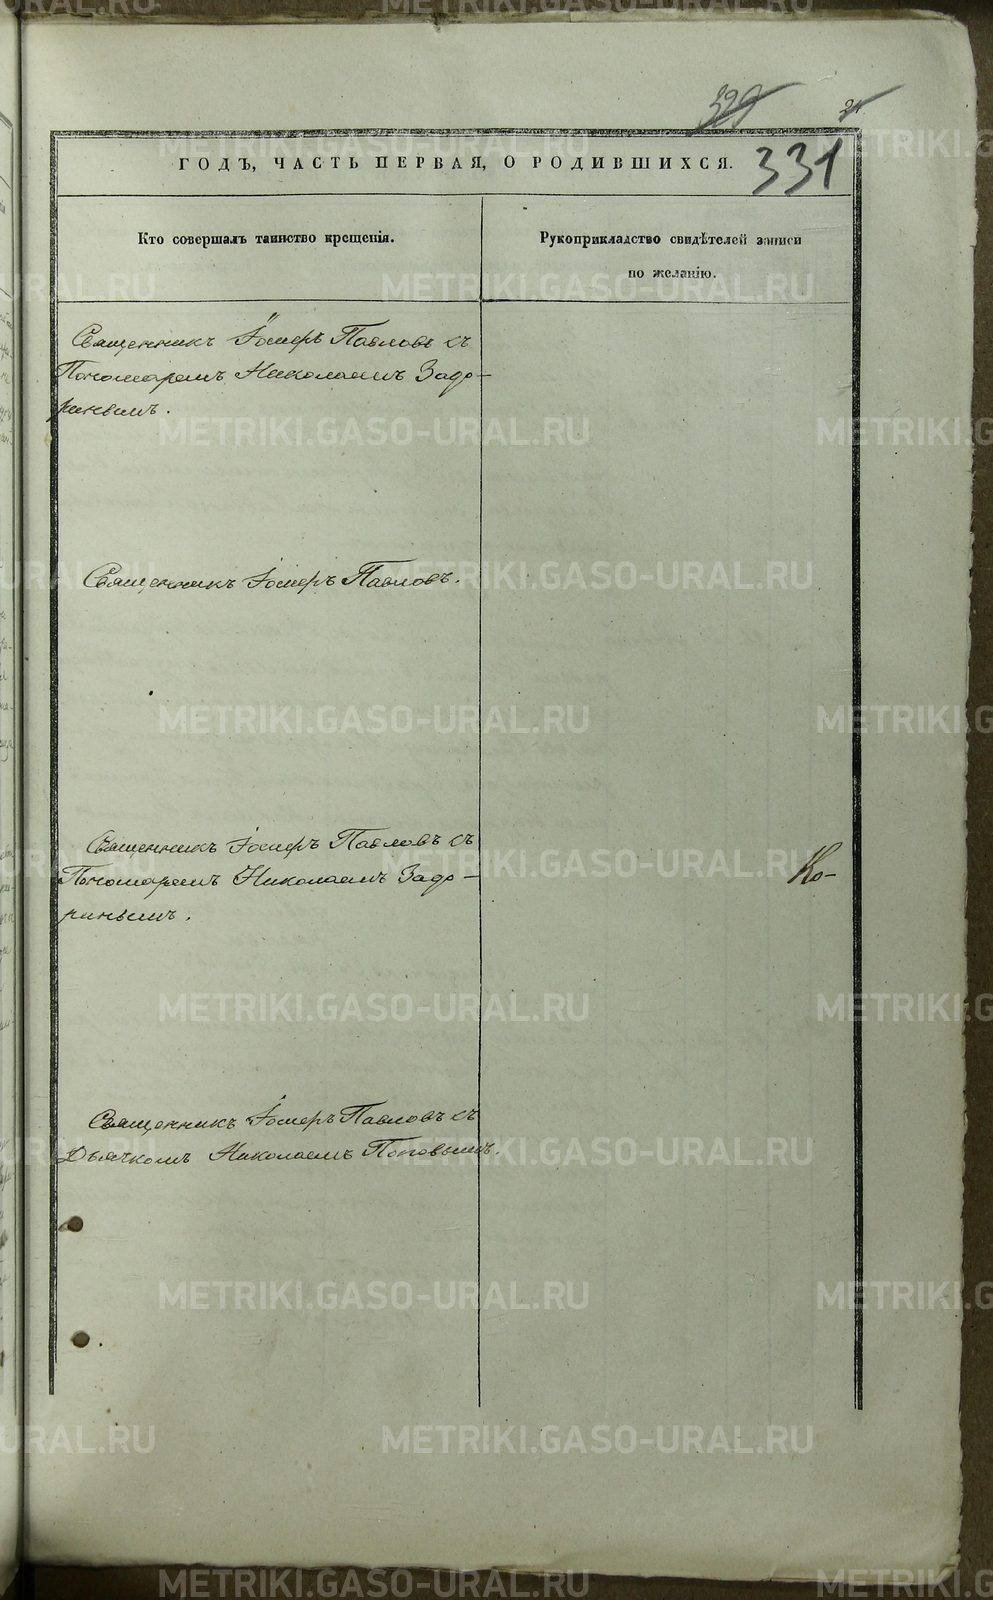 329
21
331
ГОДЪ, ЧАСТЬ ПЕРВАЯ, О РОДИВШИХСЯ.
Кто совершалъ таинство крещенія.
Рукоприкладство свидѣтелей записи
по желанію.
Священникъ Павловъ съ
Пономаремъ Николаемъ Задо-
ринымъ.
Священникъ Павловъ.
Священникъ Павловъ съ
Пономаремъ Николаемъ Задо-
ринымъ.
Ко-
Священникъ Павловъ съ
Дьячкомъ Николаемъ Поповымъ.
METRIKI.GASO-URAL.RU